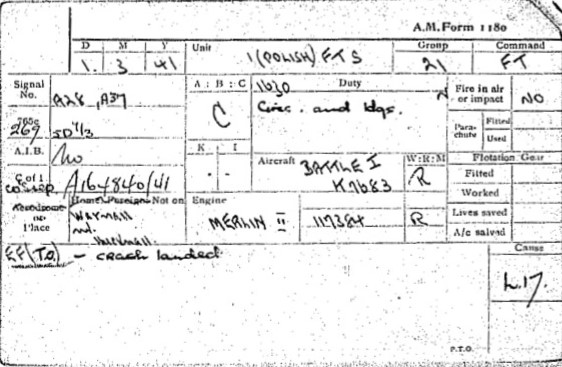 A.M. Form 1180
D M Y Unit Group Command
1. 3 41 1 (POLISH) F T S 21 FT
Signal No. A28, A37
A : B : C
C
1630 Duty N
Circ. and ldgs.
Fire in air or impact NO
765c
269 JD 4/3
Parachute Fitted
Used
A.I.B. No
K I
Aircraft BATTLE I
K7683
W:R:M
R
Flotation Gear
Fitted
Worked
C of I A164840/41
Aerodrome or Place
Home Foreign Not on
Engine MERLIN II 117384 R
Lives saved
A/c salved
E.F. (T.O.) - crash landed
Cause
L.17.
P.T.O.